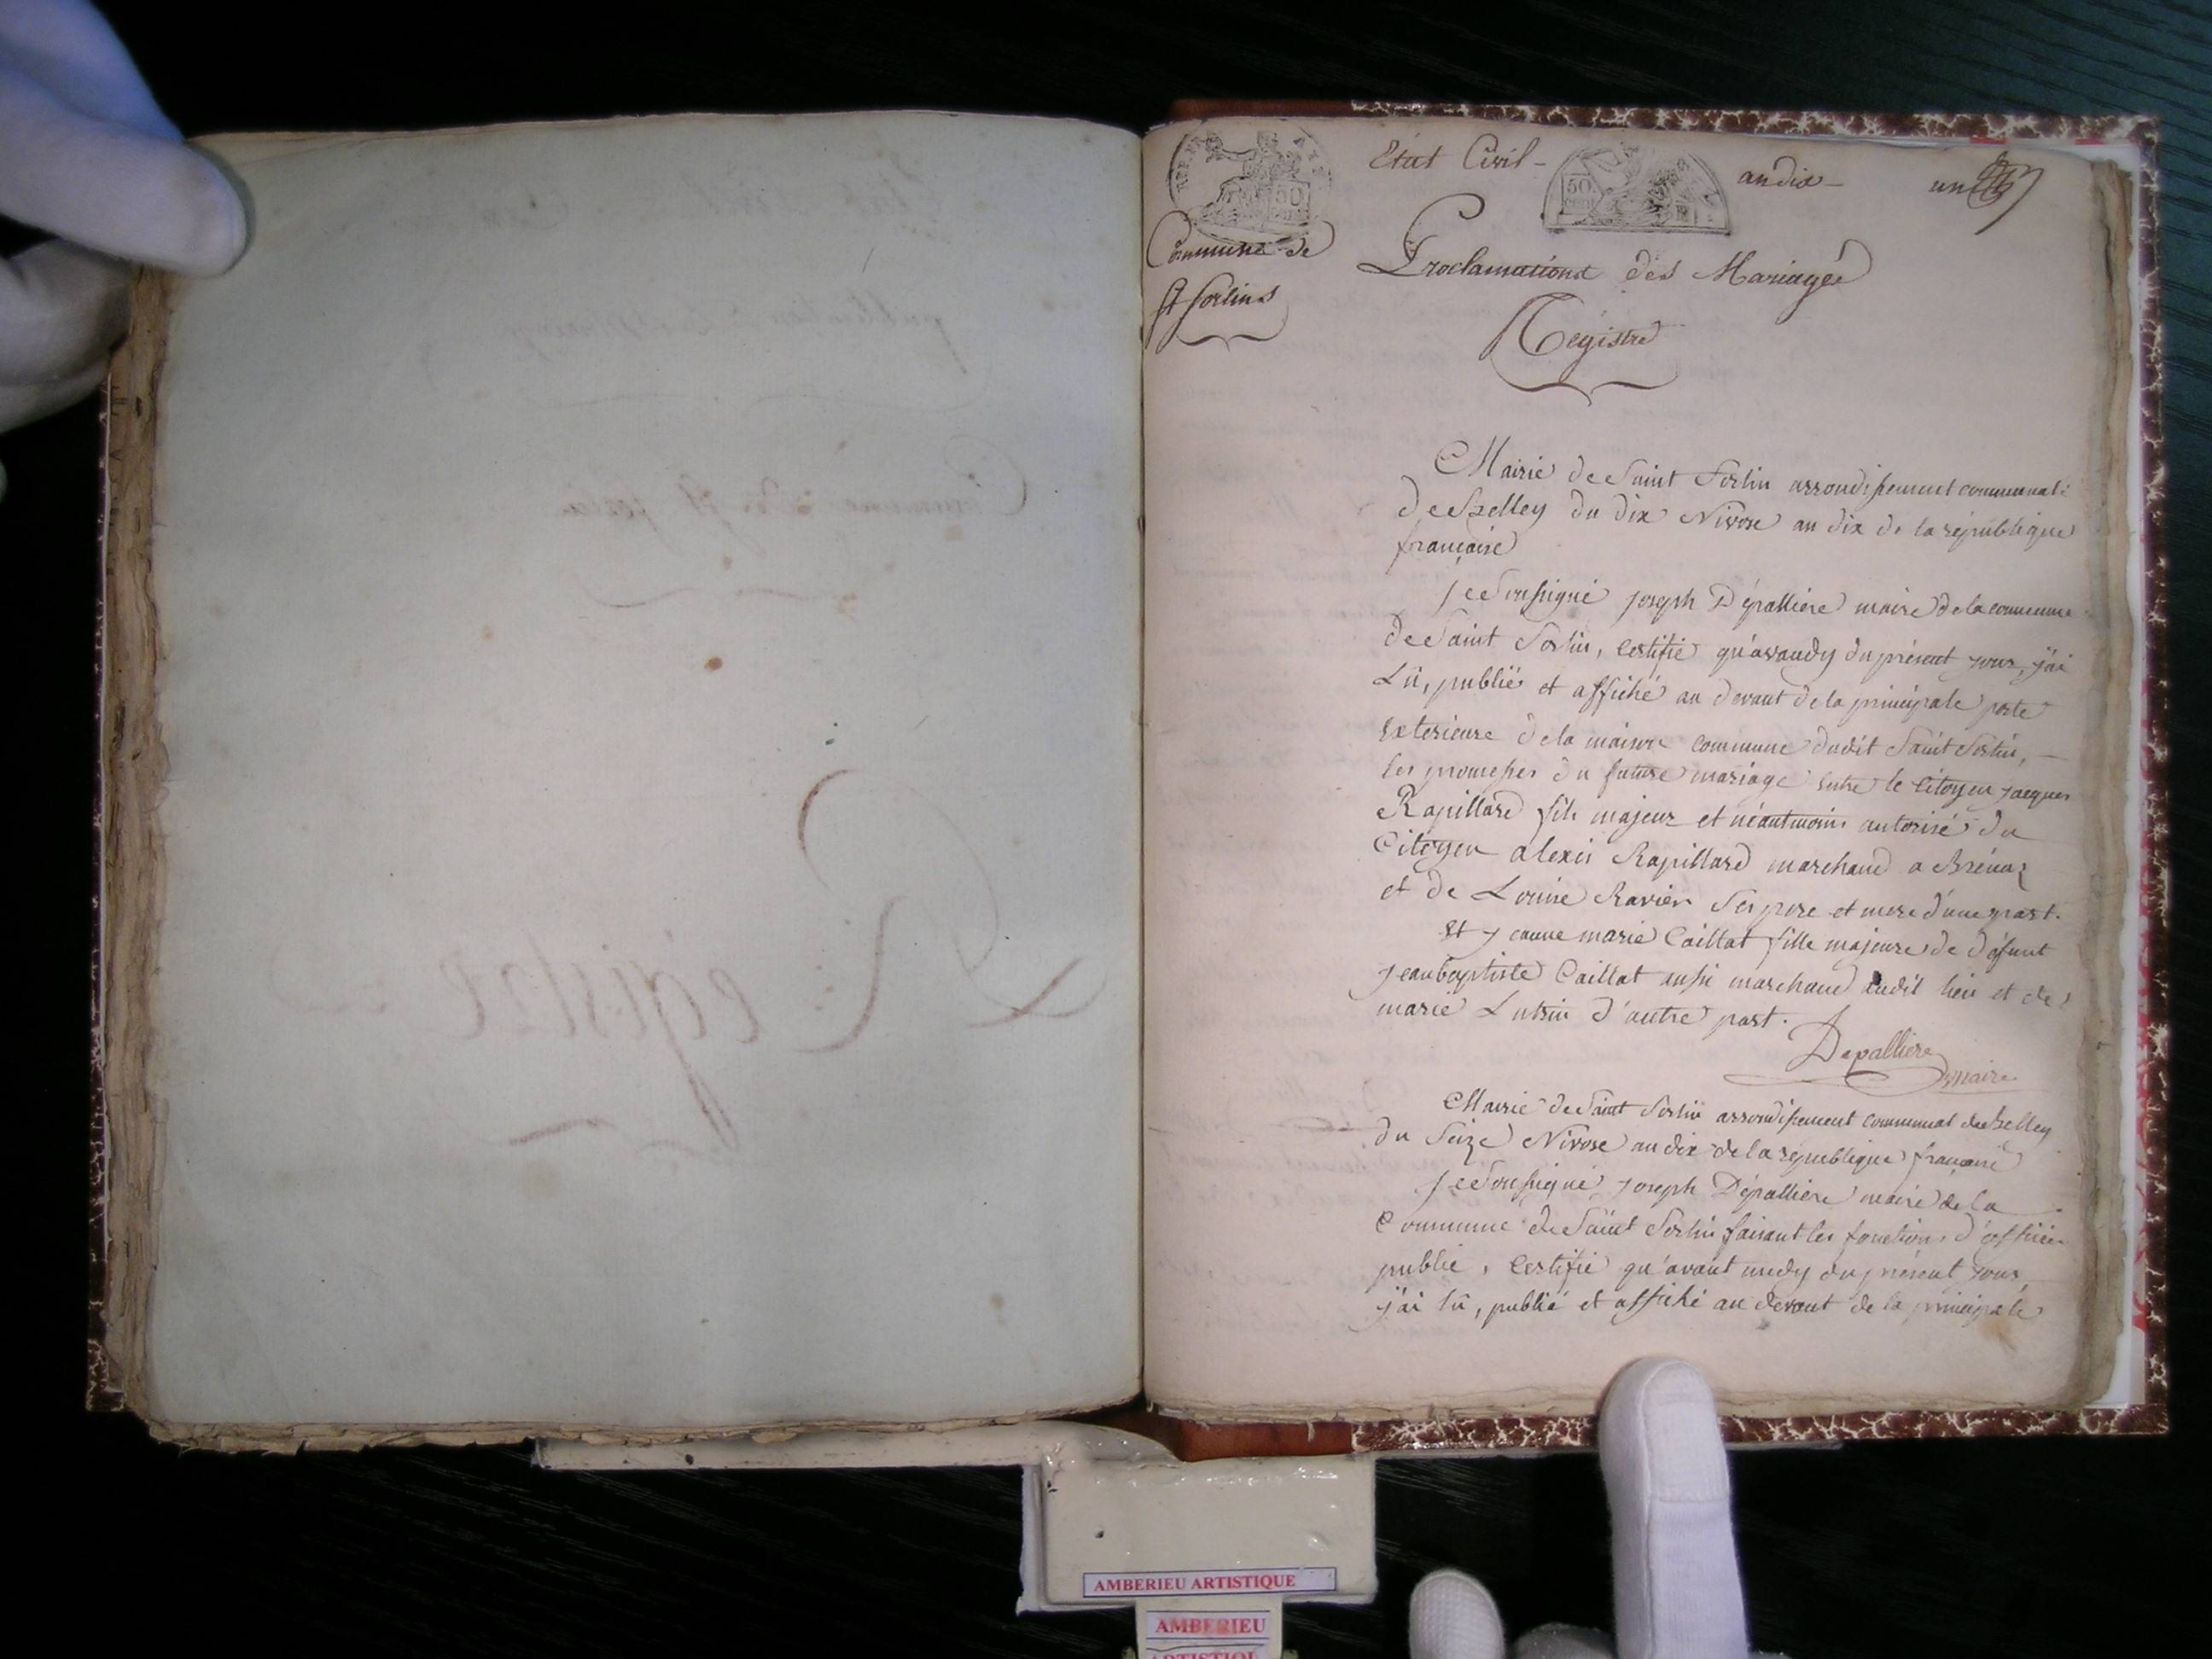 Etat Civil - an dix - un
50
50 cent
Commune de
St Sorlins
Proclamations des Mariages
Registre
Mairie de Saint Sorlin arrondissement communal
de Belley du dix Nivose an dix de la république
française
je soussigné joseph Dépallière maire de la commune
de Saint Sorlin, certifie qu'avandy du présent jour, j'ai
Lû, publié et affiché au devant de la principale porte
Exterieure de la maison commune dudit Saint Sorlin,
les promesses du future mariage entre le citoyen jacques
Rapillard fils majeur et néantmoins autorisé du
Citoyen alexis Rapillard marchand a Brénaz
et de Louise Ravier ses pere et mere d'une part.
Et jeanne marie Caillat fille majeure de défunt
jean baptiste Caillat aussi marchand audit lieu et de
marie Lutrin d'autre part.
Depalliere
maire
Mairie de Saint Sorlin arrondissement communal de Belley
du Seize Nivose an dix de la république française
je soussigné joseph Dépallière maire de la
Commune de Saint Sorlin faisant les fonctions d'officier
public, certifie qu'avant midy du présent jour,
j'ai lû, publié et affiché au devant de la principale
Registre
AMBERIEU ARTISTIQUE
AMBERIEU
ARTISTIQUE